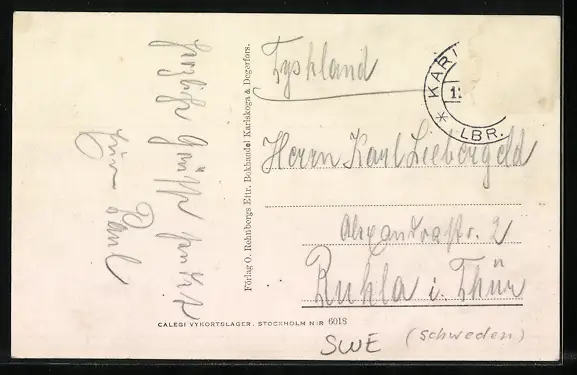 Herzliche Grüsse sendet
Euer Paul
Förlag O. Rehnbergs Eftr. Bokhandel Karlskoga & Degerfors.
Tyskland
KARL
1
LBR.
Herrn Karl Lieborgeld
Alexandrastr. 2
Ruhla i. Thür
CALEGI VYKORTSLAGER. STOCKHOLM N:R 6018
SWE (Schweden)